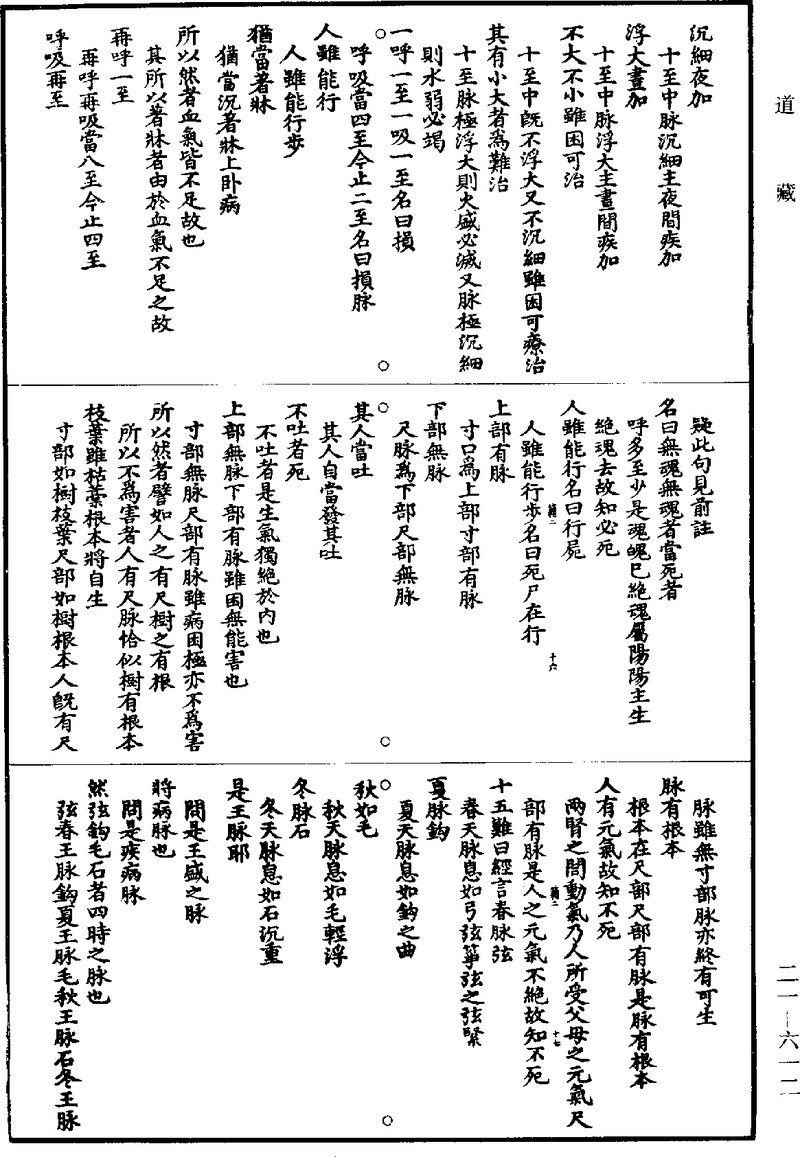 道藏
沉細夜加
十至中脉沉細主夜間疾加
浮大晝加
十至中脉浮大主晝間疾加
不大不小雖困可治
十至中旣不浮大又不沉細雖困可療治
其有小大者爲難治
十至脉極浮大則火盛必滅又脉極沉細
則水弱必竭
一呼一至一吸一至名曰損
呼吸當四至今止二至名曰損脉
人雖能行
人雖能行步
猶當著牀
猶當沉著牀上卧病
所以然者血氣皆不足故也
其所以著牀者由於血氣不足之故
再呼一至
再呼再吸當八至今止四至
呼吸再至
疑此句見前註
名曰無魂無魂者當死者
呼多至少是魂魄巳絶魂屬陽陽主生
絶魂去故知必死
人雖能行名曰行屍
人雖能行步名曰死尸在行
上部有脉
寸口爲上部寸部有脉
下部無脉
尺脉爲下部尺部無脉
其人當吐
其人自當發其吐
不吐者死
不吐者是生氣獨絶於內也
上部無脉下部有脉雖困無能害也
寸部無脉尺部有脉雖病困極亦不爲害
所以然者譬如人之有尺樹之有根
所以不爲害者人有尺脉恰似樹有根本
枝葉雖枯葉根本將自生
寸部如樹枝葉尺部如樹根本人旣有尺
脉雖無寸部脉亦終有可生
脉有根本
根本在尺部尺部有脉是脉有根本
人有元氣故知不死
兩腎之間動氣乃人所受父母之元氣尺
部有脉是人之元氣不絶故知不死
十五難曰經言春脉弦
春天脉息如弓弦箏弦之弦緊
夏脉鈎
夏天脉息如鈎之曲
秋如毛
秋天脉息如毛輕浮
冬脉石
冬天脉息如石沉重
是王脉耶
問是王盛之脉
將病脉也
問是疾病脉
然弦鈎毛石者四時之脉也
弦春王脉鈎夏王脉毛秋王脉石冬王脉
十六
十七
二一—六一二